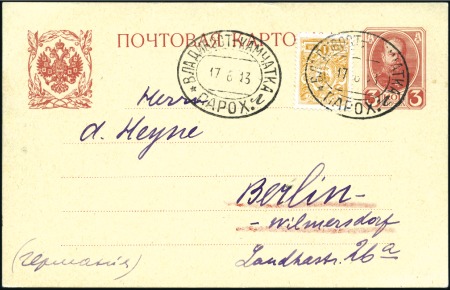 ПОЧТОВАЯ КАРТОЧКА
ВЛАДИВОСТ. КАМЧАТКА
17 6 13
* ПАРОХ. 2 *
ВЛАДИВОСТ. КАМЧАТКА
17 6
ПАРОХ. 2
3 3
Herrn
d. Heyne
Berlin-
-Wilmersdorf
Landhastr. 26a
(Германия)